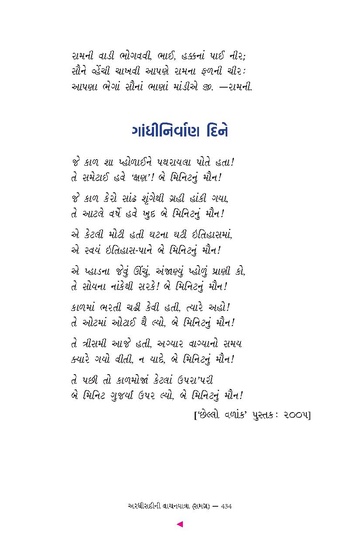 રામની વાડી ભોગવવી, ભાઈ, હક્કનાં પાઈ નીર;
સૌને વ્હેંચી ચાખવી આપણે રામના ફળની ચીરઃ
આપણા ભેગાં સૌનાં ભાણાં માંડીએ જી. —રામની.
ગાંધીનિર્વાણ દિને
જે કાળ શા પ્હોળાઈને પથરાયલા પોતે હતા!
તે સમેટાઈ હવે ‘ક્ષણ’! બે મિનિટનું મૌન!
જે કાળ કેરો સાંઢ શૃંગેથી ગ્રહી હાંકી ગયા,
તે આટલે વર્ષે હવે ખુદ બે મિનિટનું મૌન!
એ કેટલી મોટી હતી ઘટના ઘટી ઇતિહાસમાં,
એ સ્વયં ઇતિહાસ-પાને બે મિનિટનું મૌન!
એ પ્હાડના જેવું ઊંચું, અંજાણ્યું પ્હોળું પ્રાણી કો,
તે સોયના નાકેથી સરકે! બે મિનિટનું મૌન!
કાળમાં ભરતી ચઢી કેવી હતી, ત્યારે અહો!
તે ઓટમાં ઓટાઈ થૈ લ્યો, બે મિનિટનું મૌન!
તે ત્રીસમી આજે હતી, અગ્યાર વાગ્યાનો સમય
ક્યારે ગયો વીતી, ન યાદે, બે મિનિટનું મૌન!
તે પછી તો કાળમોજાં કેટલાં ઉપરાપરી
બે મિનિટ ગુજર્યા ઉપર લ્યો, બે મિનિટનું મૌન!
[‘છેલ્લો વળાંક’ પુસ્તકઃ ૨૦૦૫]
અરધીસદીની વાચનયાત્રા (સમગ્ર) — 434